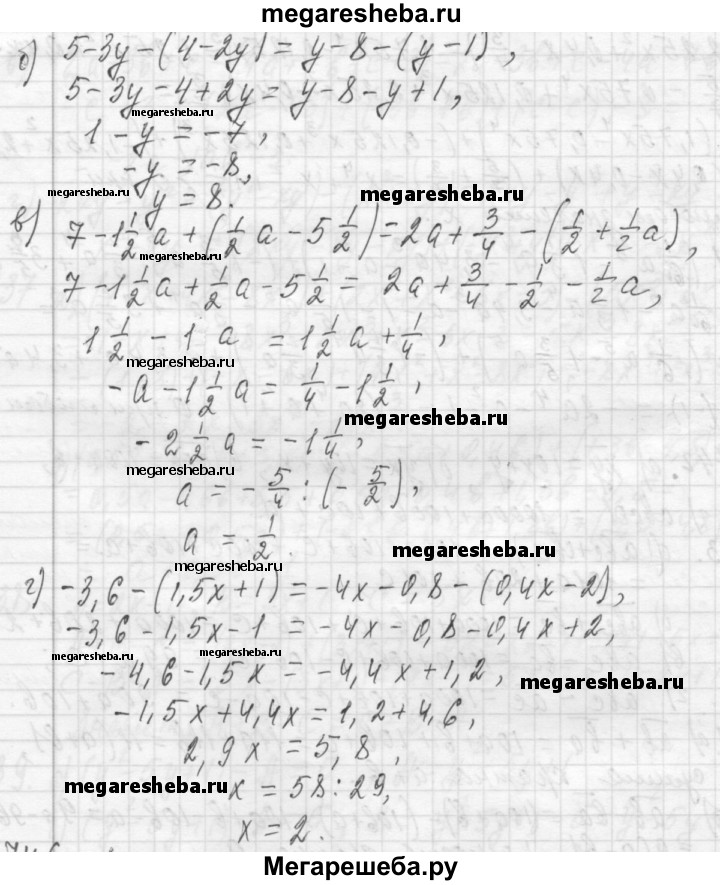 megaresheba.ru
б) 5-3y-(4-2y)=y-8-(y-1),
5-3y-4+2y=y-8-y+1,
megaresheba.ru
1-y=-7,
-y=-8,
megaresheba.ru megaresheba.ru
y=8.
в) 7-1 1/2 a+(1/2 a-5 1/2)=2a+3/4-(1/2+1/2 a),
7-1 1/2 a+1/2 a-5 1/2=2a+3/4-1/2-1/2 a,
1 1/2-1 a=1 1/2 a+1/4,
megaresheba.ru
-a-1 1/2 a=1/4-1 1/2,
megaresheba.ru
-2 1/2 a=-1 1/4,
megaresheba.ru
a=-5/4:(-5/2),
a=1/2.
megaresheba.ru
megaresheba.ru
г) -3,6-(1,5x+1)=-4x-0,8-(0,4x-2),
-3,6-1,5x-1=-4x-0,8-0,4x+2,
megaresheba.ru megaresheba.ru
-4,6-1,5x=-4,4x+1,2,
megaresheba.ru
-1,5x+4,4x=1,2+4,6,
2,9x=5,8,
megaresheba.ru
x=58:29,
megaresheba.ru
x=2.
Мегарешеба.ру